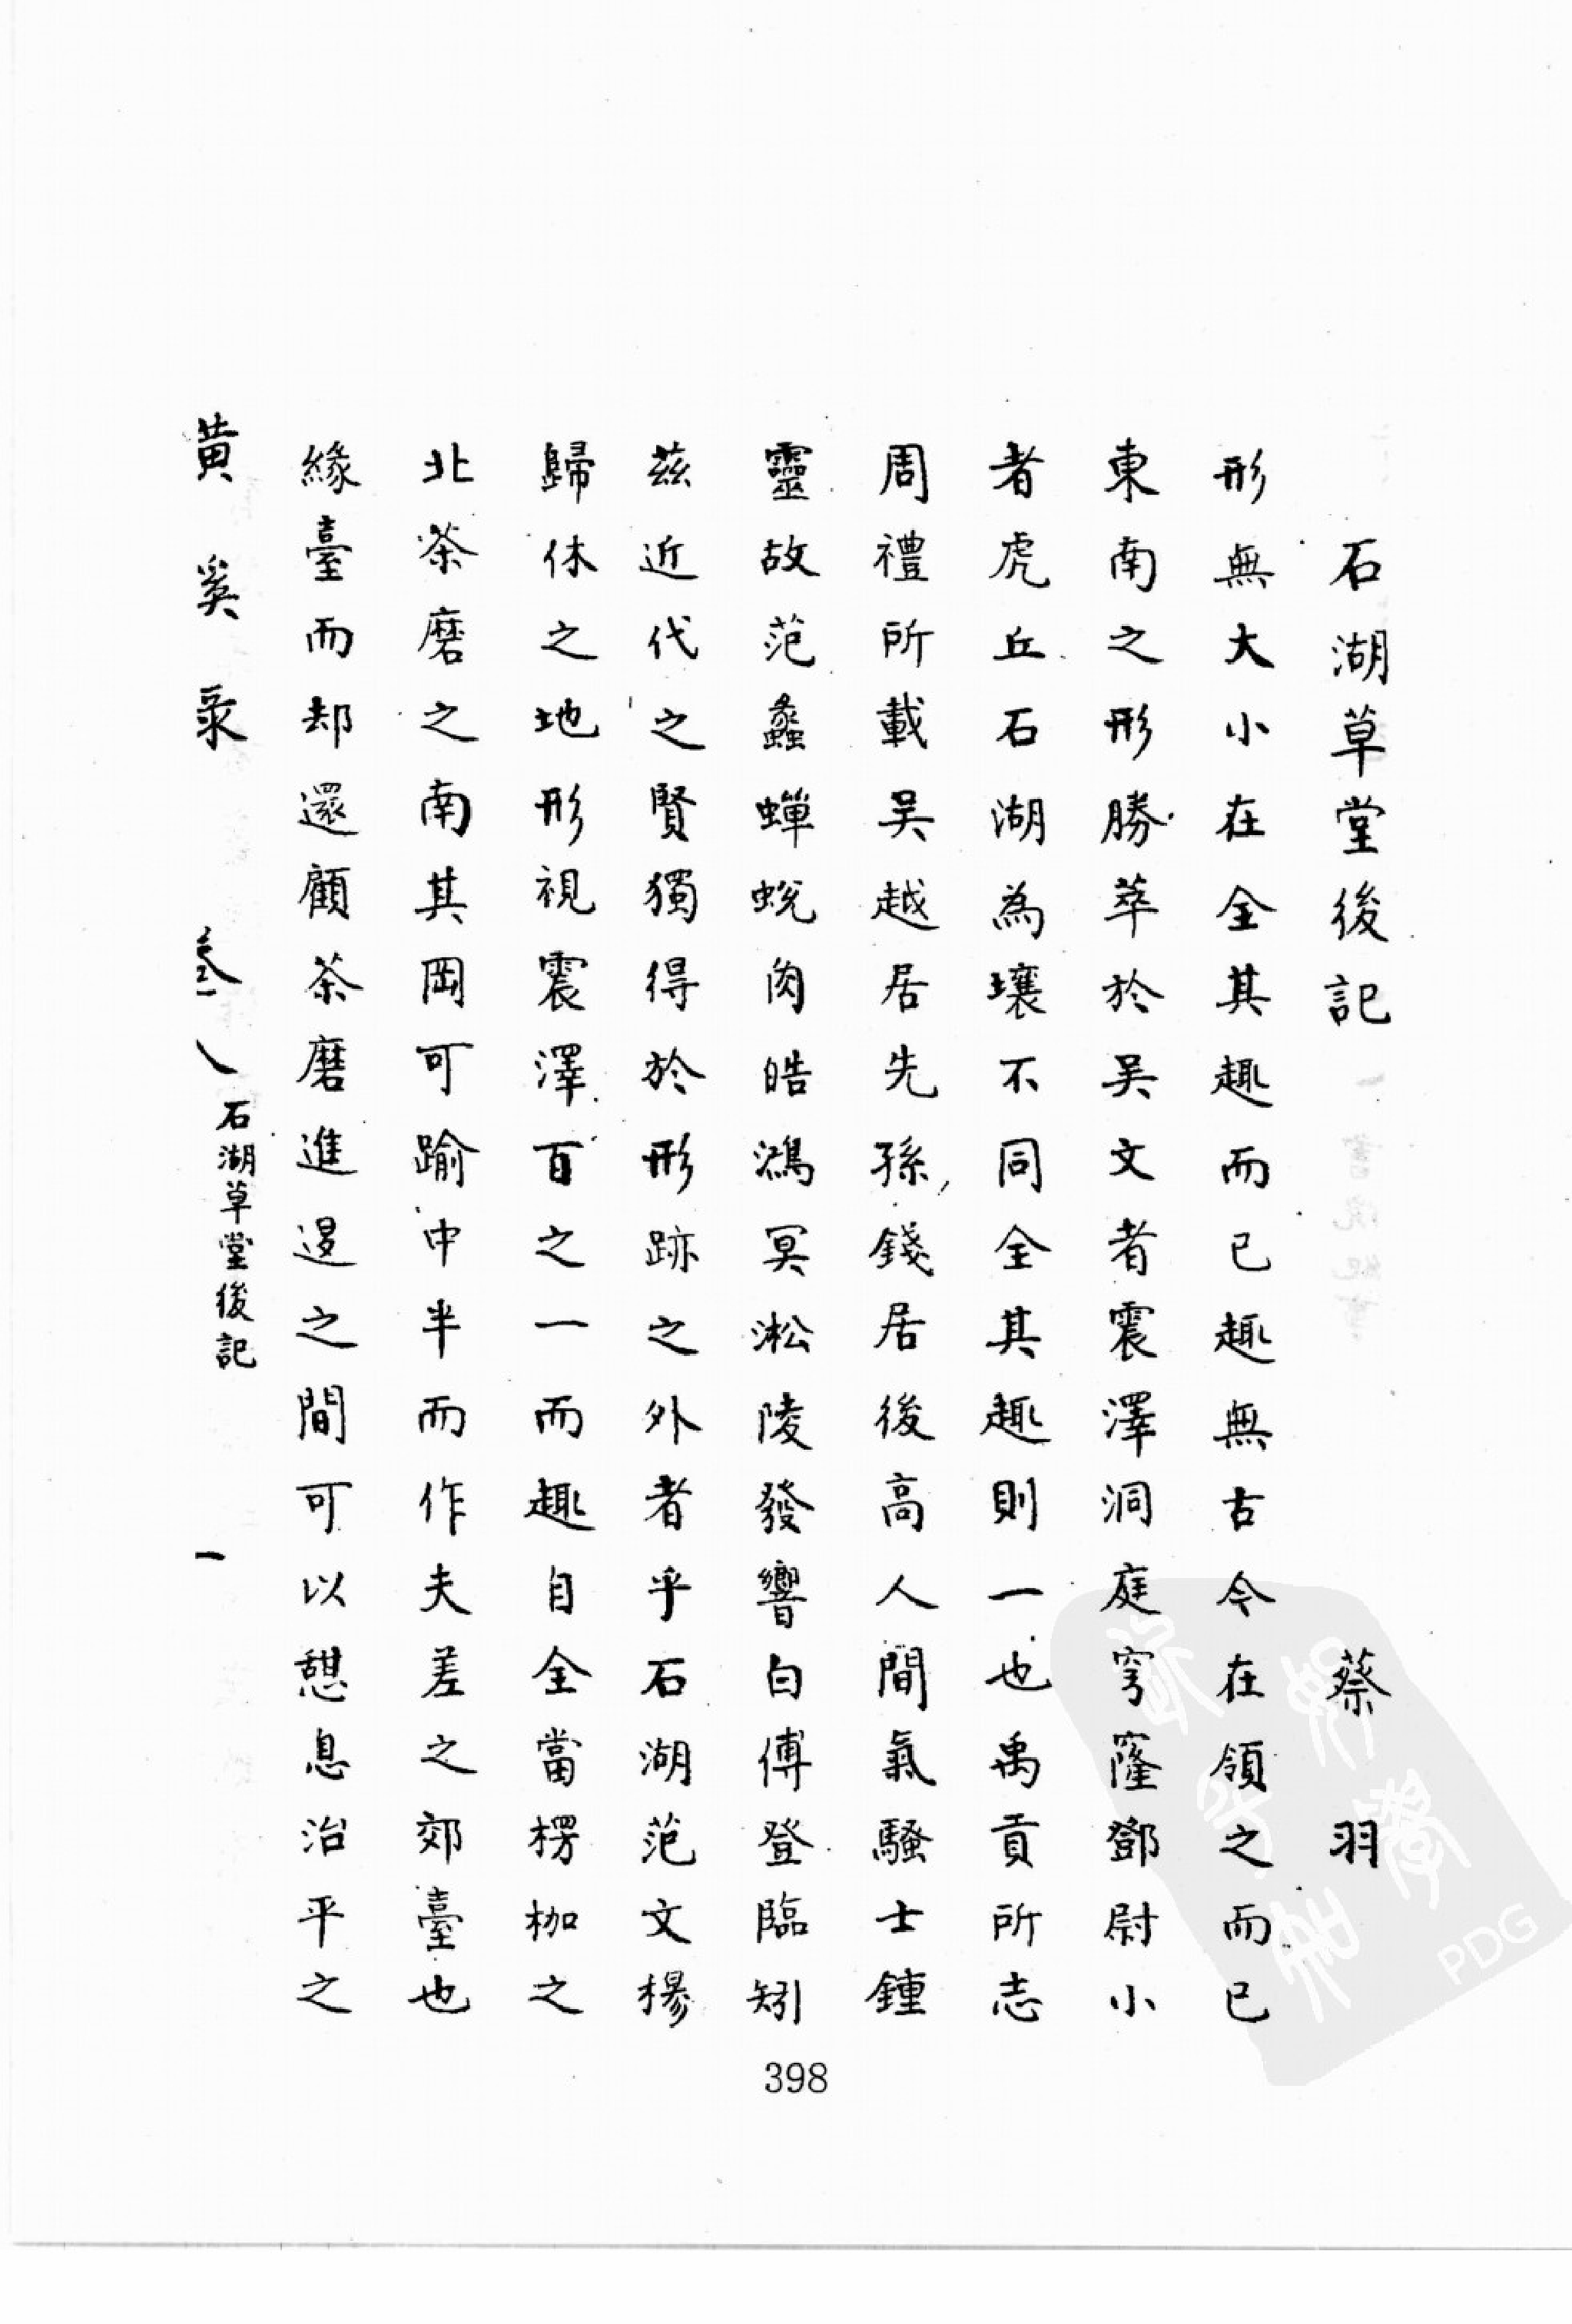 石湖草堂後記 蔡羽
形無大小在全其趣而已趣無古今在領之而已
東南之形勝萃於吳文者震澤洞庭穹窿鄧尉小
者虎丘石湖為壤不同全其趣則一也禹貢所志
周禮所載吳越居先孫錢居後高人間氣騷士鍾
靈故范蠡蟬蛻肉皓鴻冥淞陵發響白傅登臨矧
茲近代之賢獨得於形跡之外者乎石湖范文穆
歸休之地形視震澤百之一而趣自全當楞枷之
北茶磨之南其岡可踰中半而作夫差之郊臺也
緣臺而却還顧茶磨進退之間可以憩息治平之
石湖草堂後記
一
398
PDG